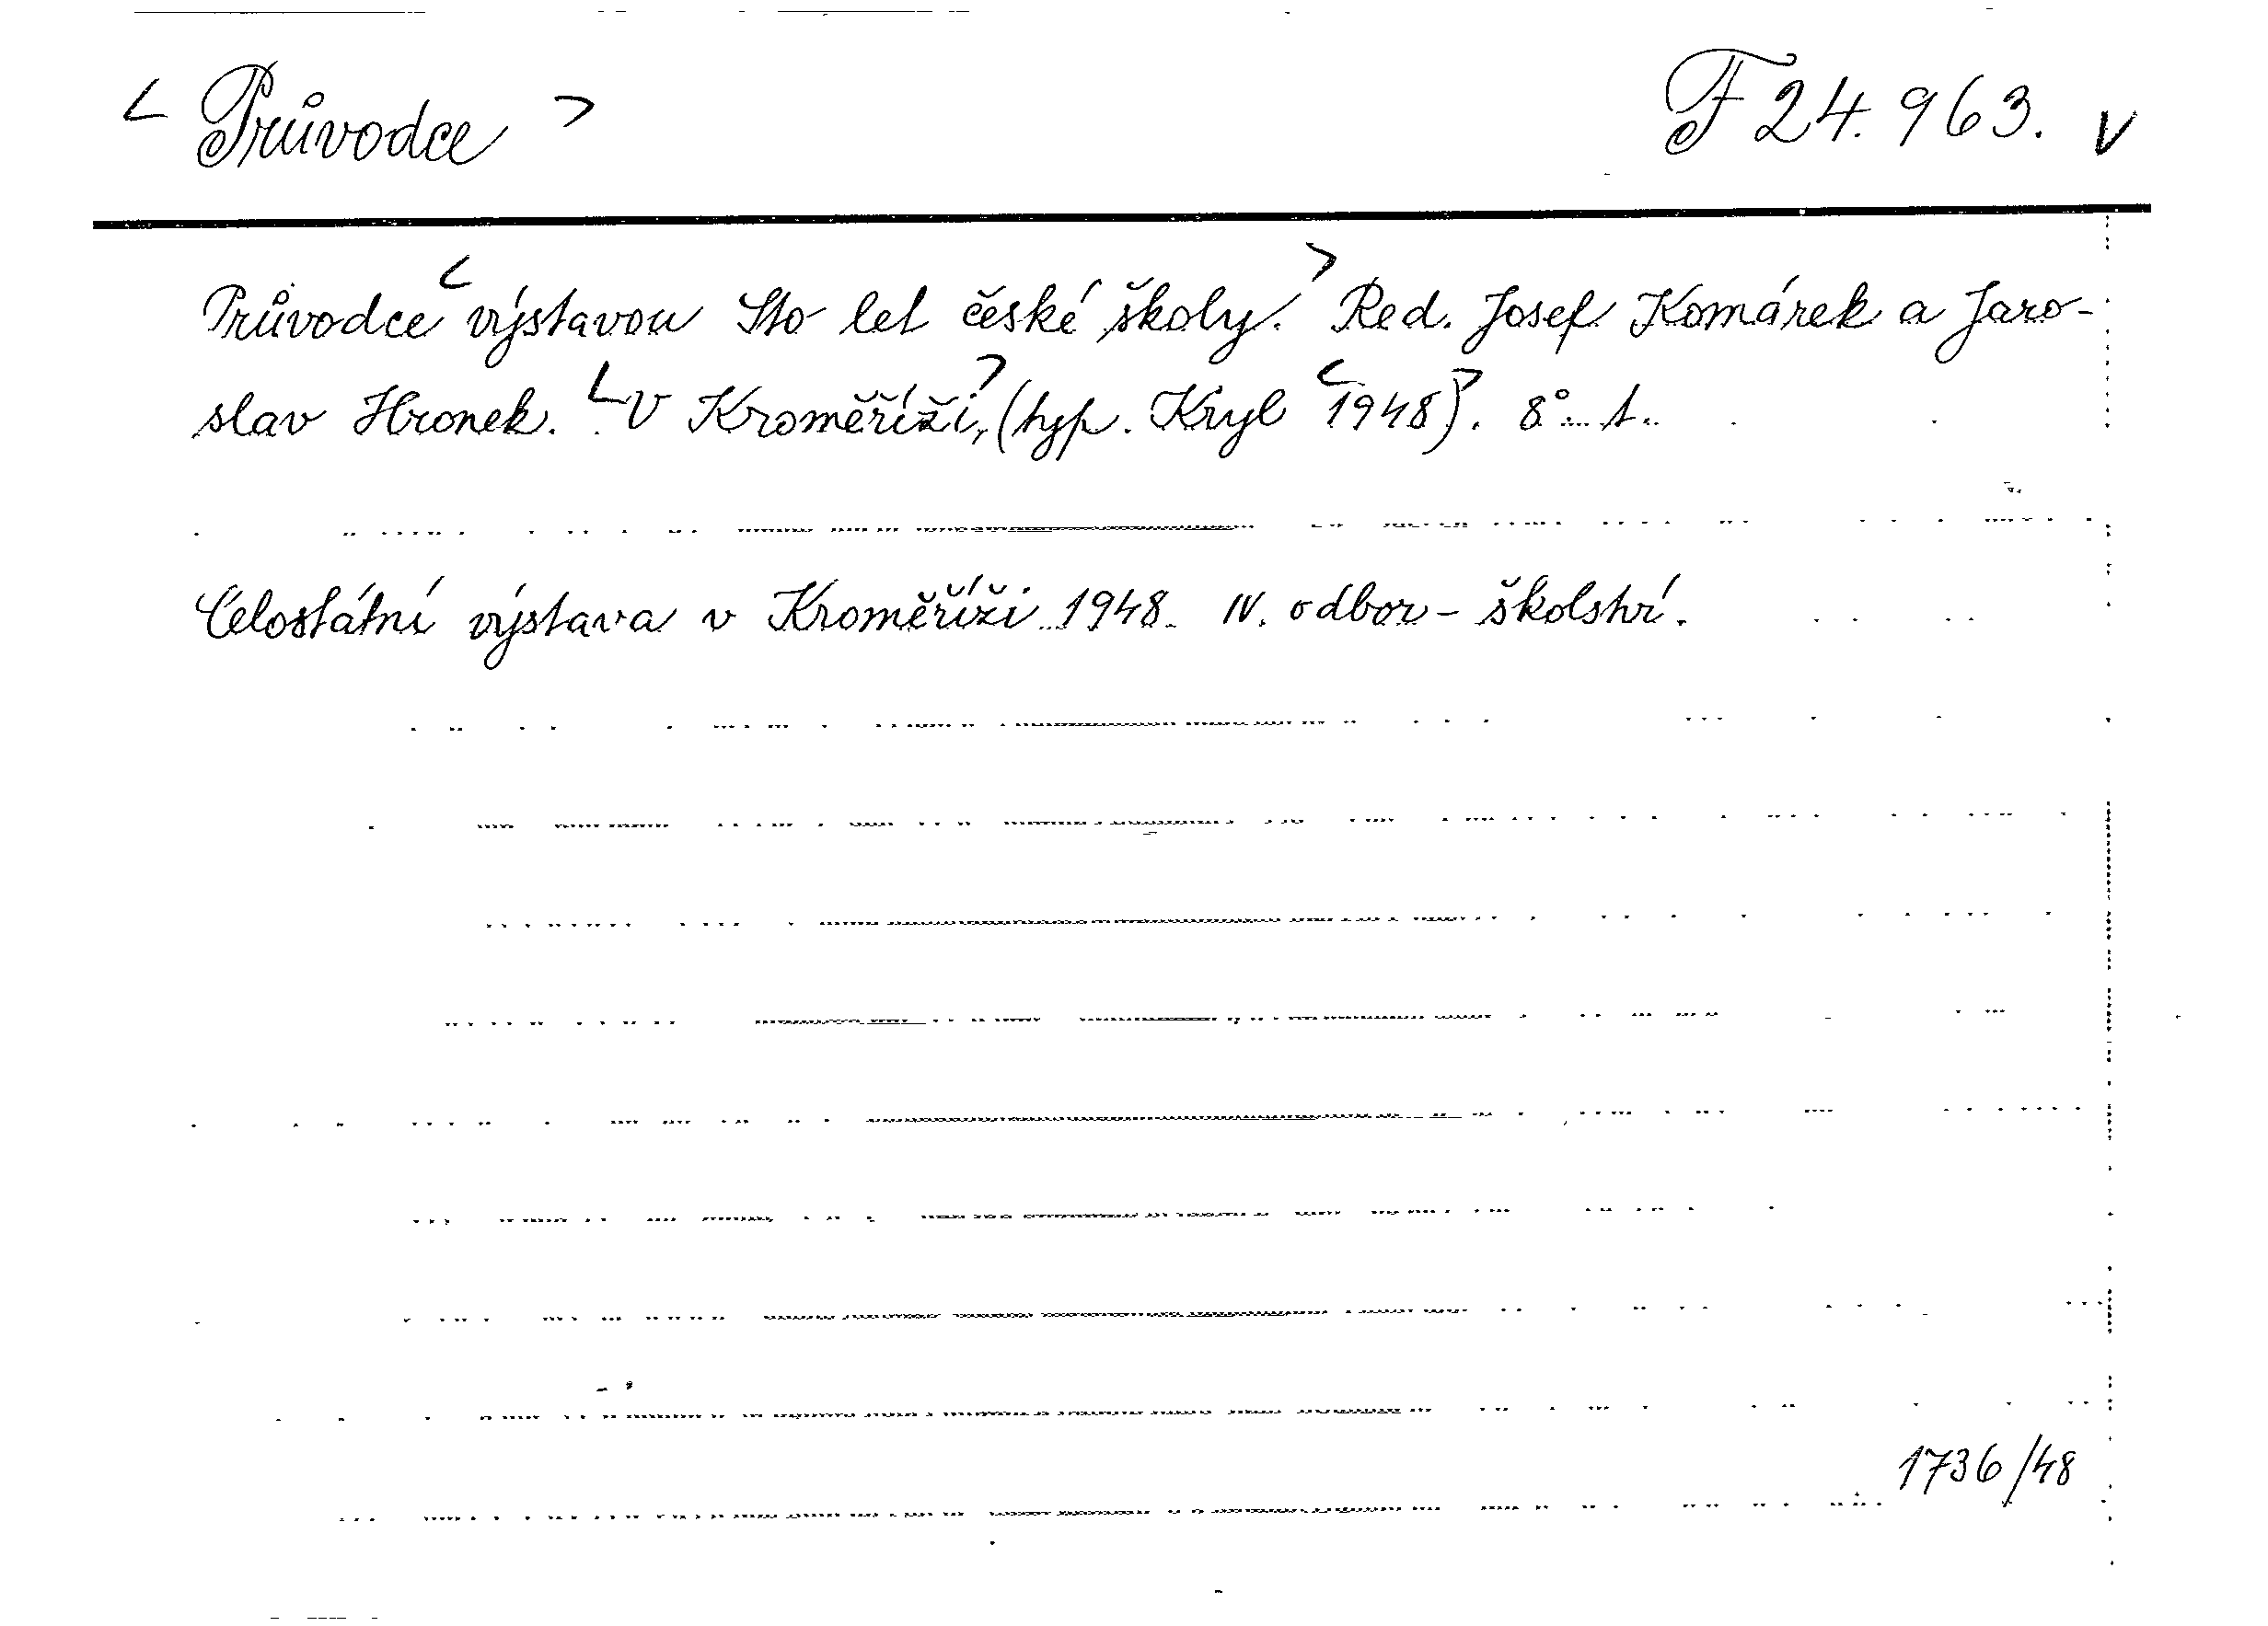 < Průvodce > F 24.963. v
Průvodce < výstavou Sto let české školy. > Red. Josef Komárek a Jaro-
slav Hronek. < V Kroměříži, > (typ. Kryl < 1948 >). 8°. t.
Celostátní výstava v Kroměříži 1948. IV. odbor - školství.
1736/48